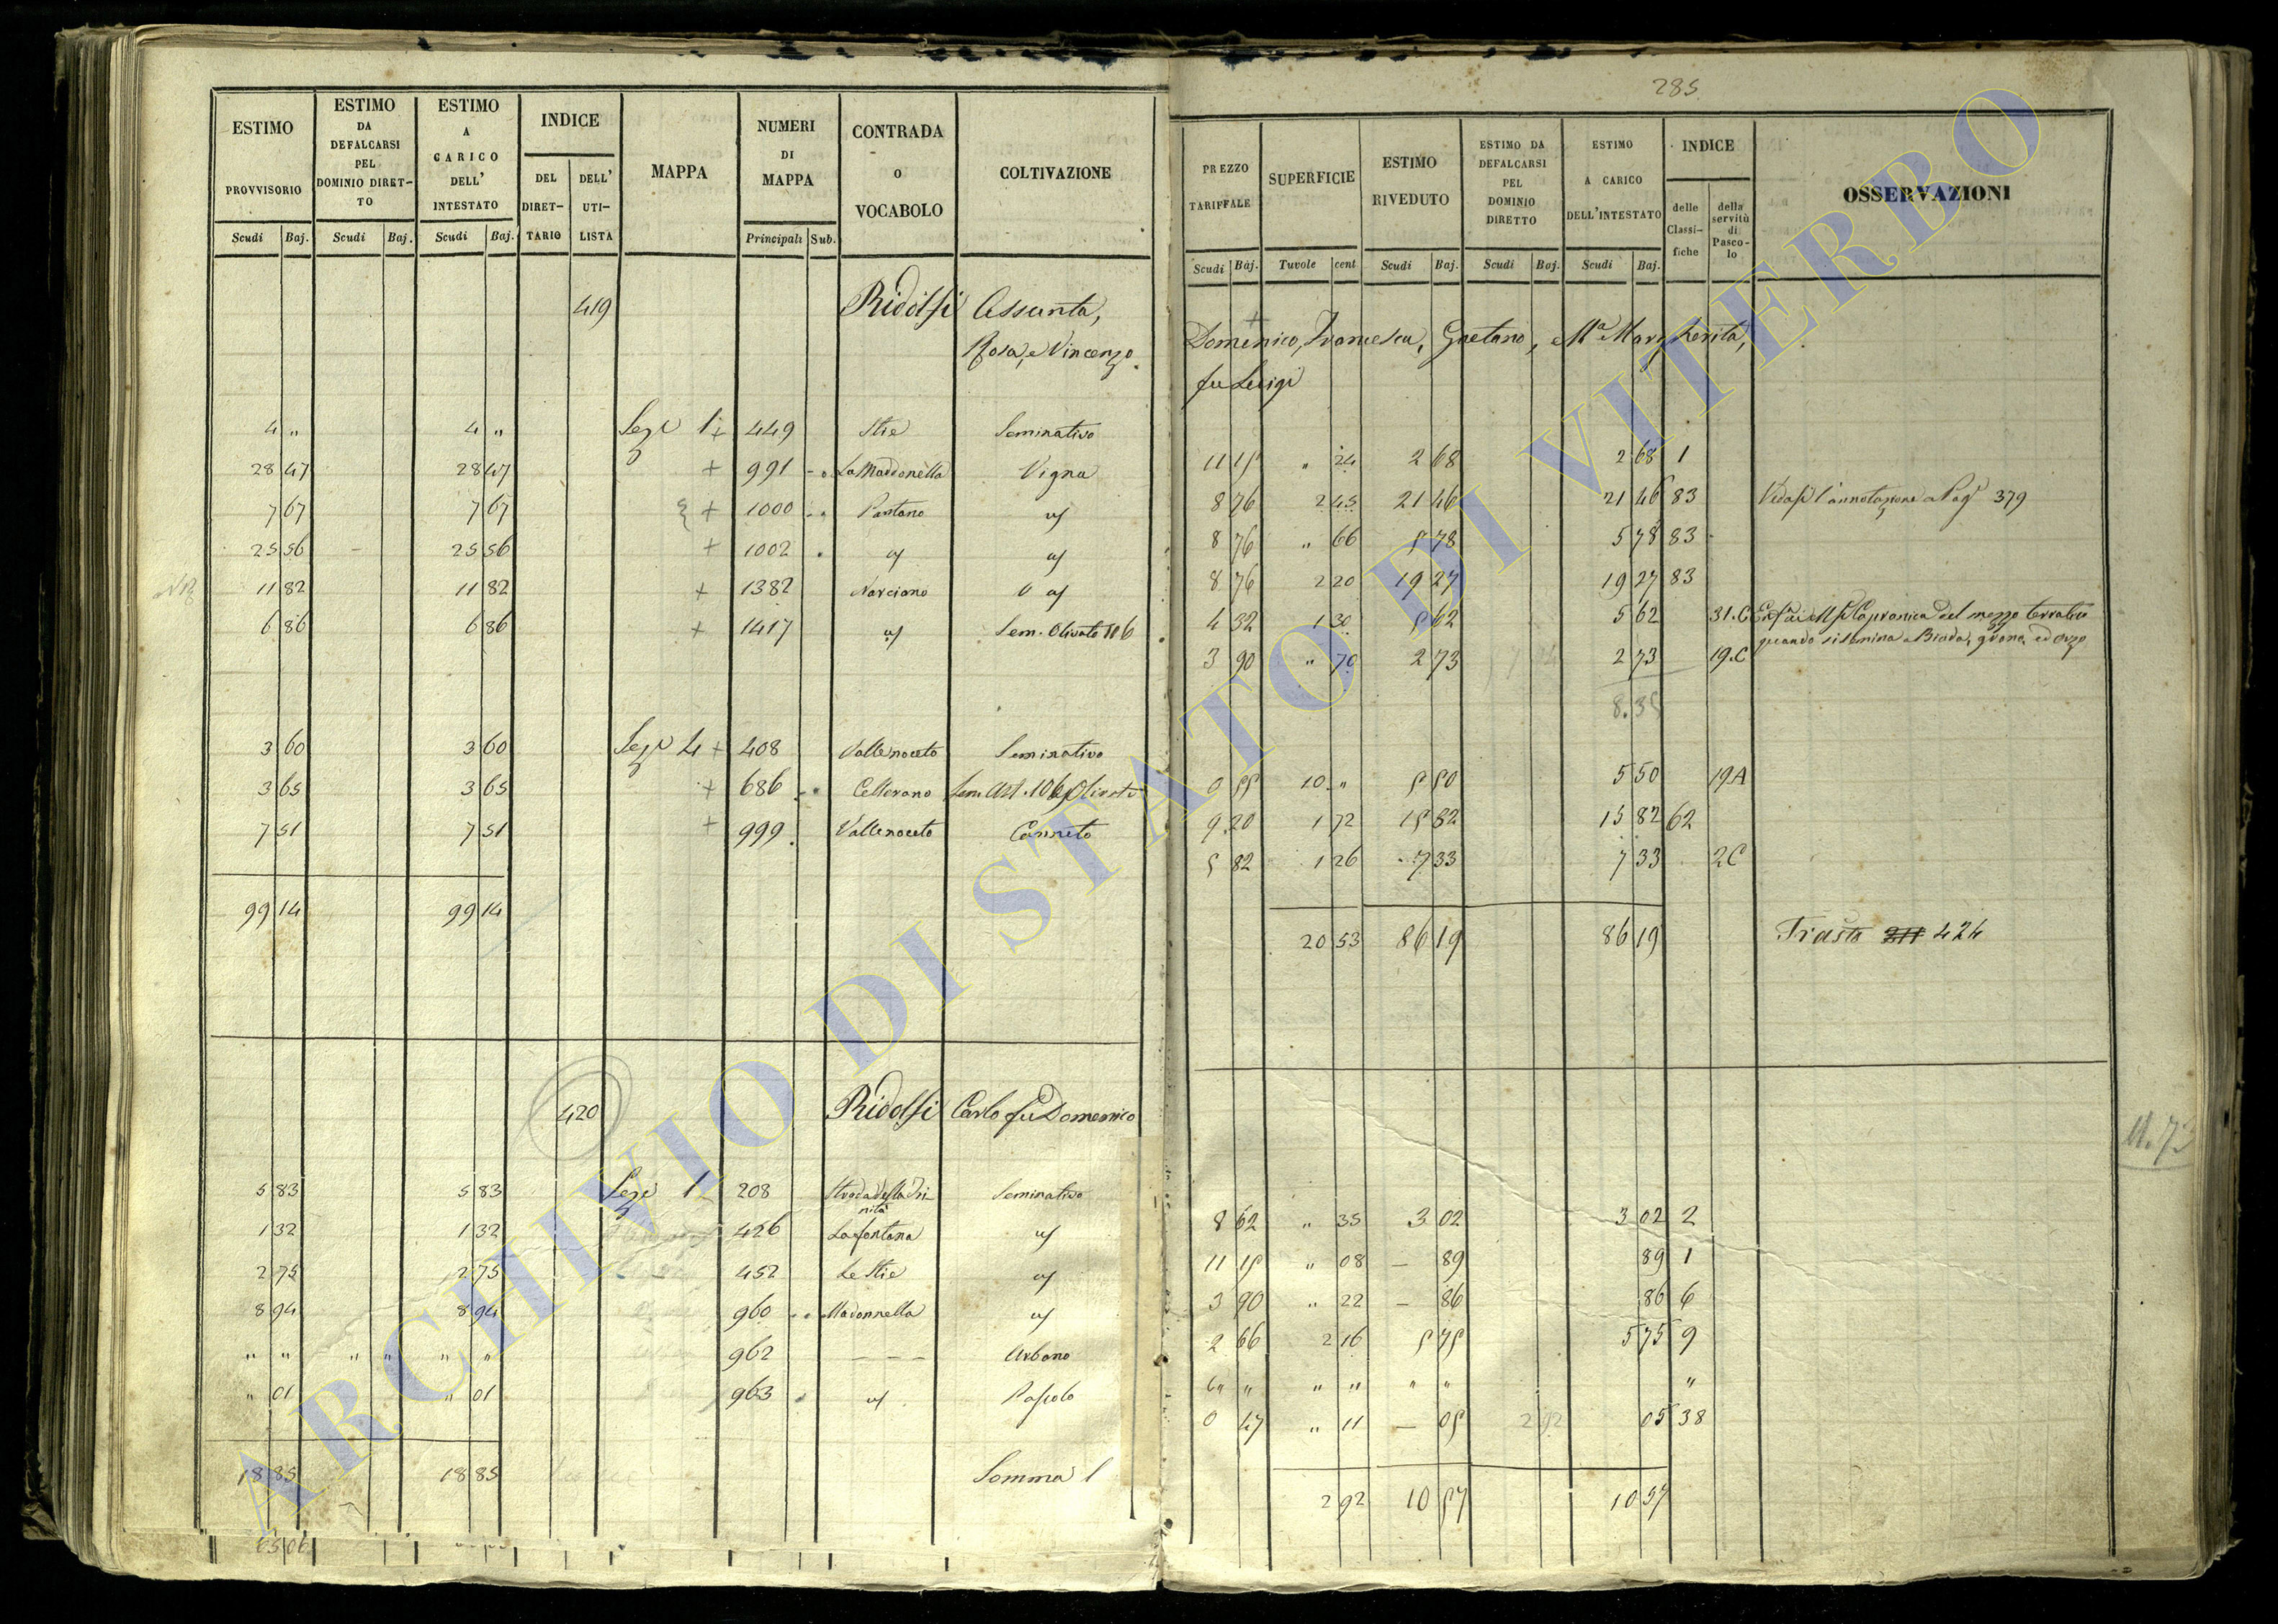 285
ESTIMO PROVVISORIO | ESTIMO DA DEFALCARSI PEL DOMINIO DIRET-TO | ESTIMO A CARICO DELL' INTESTATO | INDICE | MAPPA | NUMERI DI MAPPA | CONTRADA O VOCABOLO | COLTIVAZIONE
DEL DIRET-TARIO | DELL' UTI-LISTA
Scudi | Baj. | Scudi | Baj. | Scudi | Baj. | Principali | Sub.
419 Ridolfi Assunta,
Rosa, e Vincenzo
4 " 4 " Sez.e 1 + 449 Stie Seminativo
28 47 28 47 + 991 La Madonella Vigna
7 67 7 67 + 1000 Pantano
25 56 25 56 + 1002
11 82 11 82 + 1382 Narciano
6 86 6 86 + 1417 Sem. Olivato
3 60 3 60 Sez.e 4 + 408 Vallenoceto Seminativo
3 65 3 65 + 686 Cellerano Olivato
7 51 7 51 + 999 Vallenoceto Canneto
99 14 99 14
420 Ridolfi Carlo fu Domenico
5 83 5 83 Sez.e 1 208 Strada della Tri-nità Seminativo
1 32 1 32 426 La fontana
2 75 2 75 452 Le Stie
8 94 8 94 960 Madonnella
" " " " " " 962 - - - Urbano
" 01 " 01 963 Pascolo
18 85 18 85 Somma
PREZZO TARIFFALE | SUPERFICIE | ESTIMO RIVEDUTO | ESTIMO DA DEFALCARSI PEL DOMINIO DIRETTO | ESTIMO A CARICO DELL'INTESTATO | INDICE | OSSERVAZIONI
delle Classi-fiche | della servitù di Pasco-lo
Scudi | Baj. | Tavole | cent | Scudi | Baj. | Scudi | Baj. | Scudi | Baj.
Domenico, Francesca, Gaetano, e M.a Margherita,
fu Luigi
11 15 " 24 2 68 2 68 1
8 76 2 45 21 46 21 46 83 Vedasi l'annotazione a Pag. 379
8 76 " 66 5 78 5 78 83
8 76 2 20 19 27 19 27 83
4 32 1 30 5 62 5 62 31.C Capranica del mezzo terratico
quando si semina a Biada, grano, ed orzo
3 90 " 70 2 73 2 73 19.C
8.35
0 55 10 " 5 50 5 50 19A
9 20 1 72 15 82 15 82 62
5 82 1 26 7 33 7 33 2C
20 53 86 19 86 19 Trasto 424
8 62 " 35 3 02 3 02 2
11 15 " 08 - 89 89 1
3 90 " 22 - 86 86 6
2 66 2 16 5 75 5 75 9
" " " " " "
0 47 " 11 - 05 05 38
2 92 10 57 10 57
ARCHIVIO DI STATO DI VITERBO